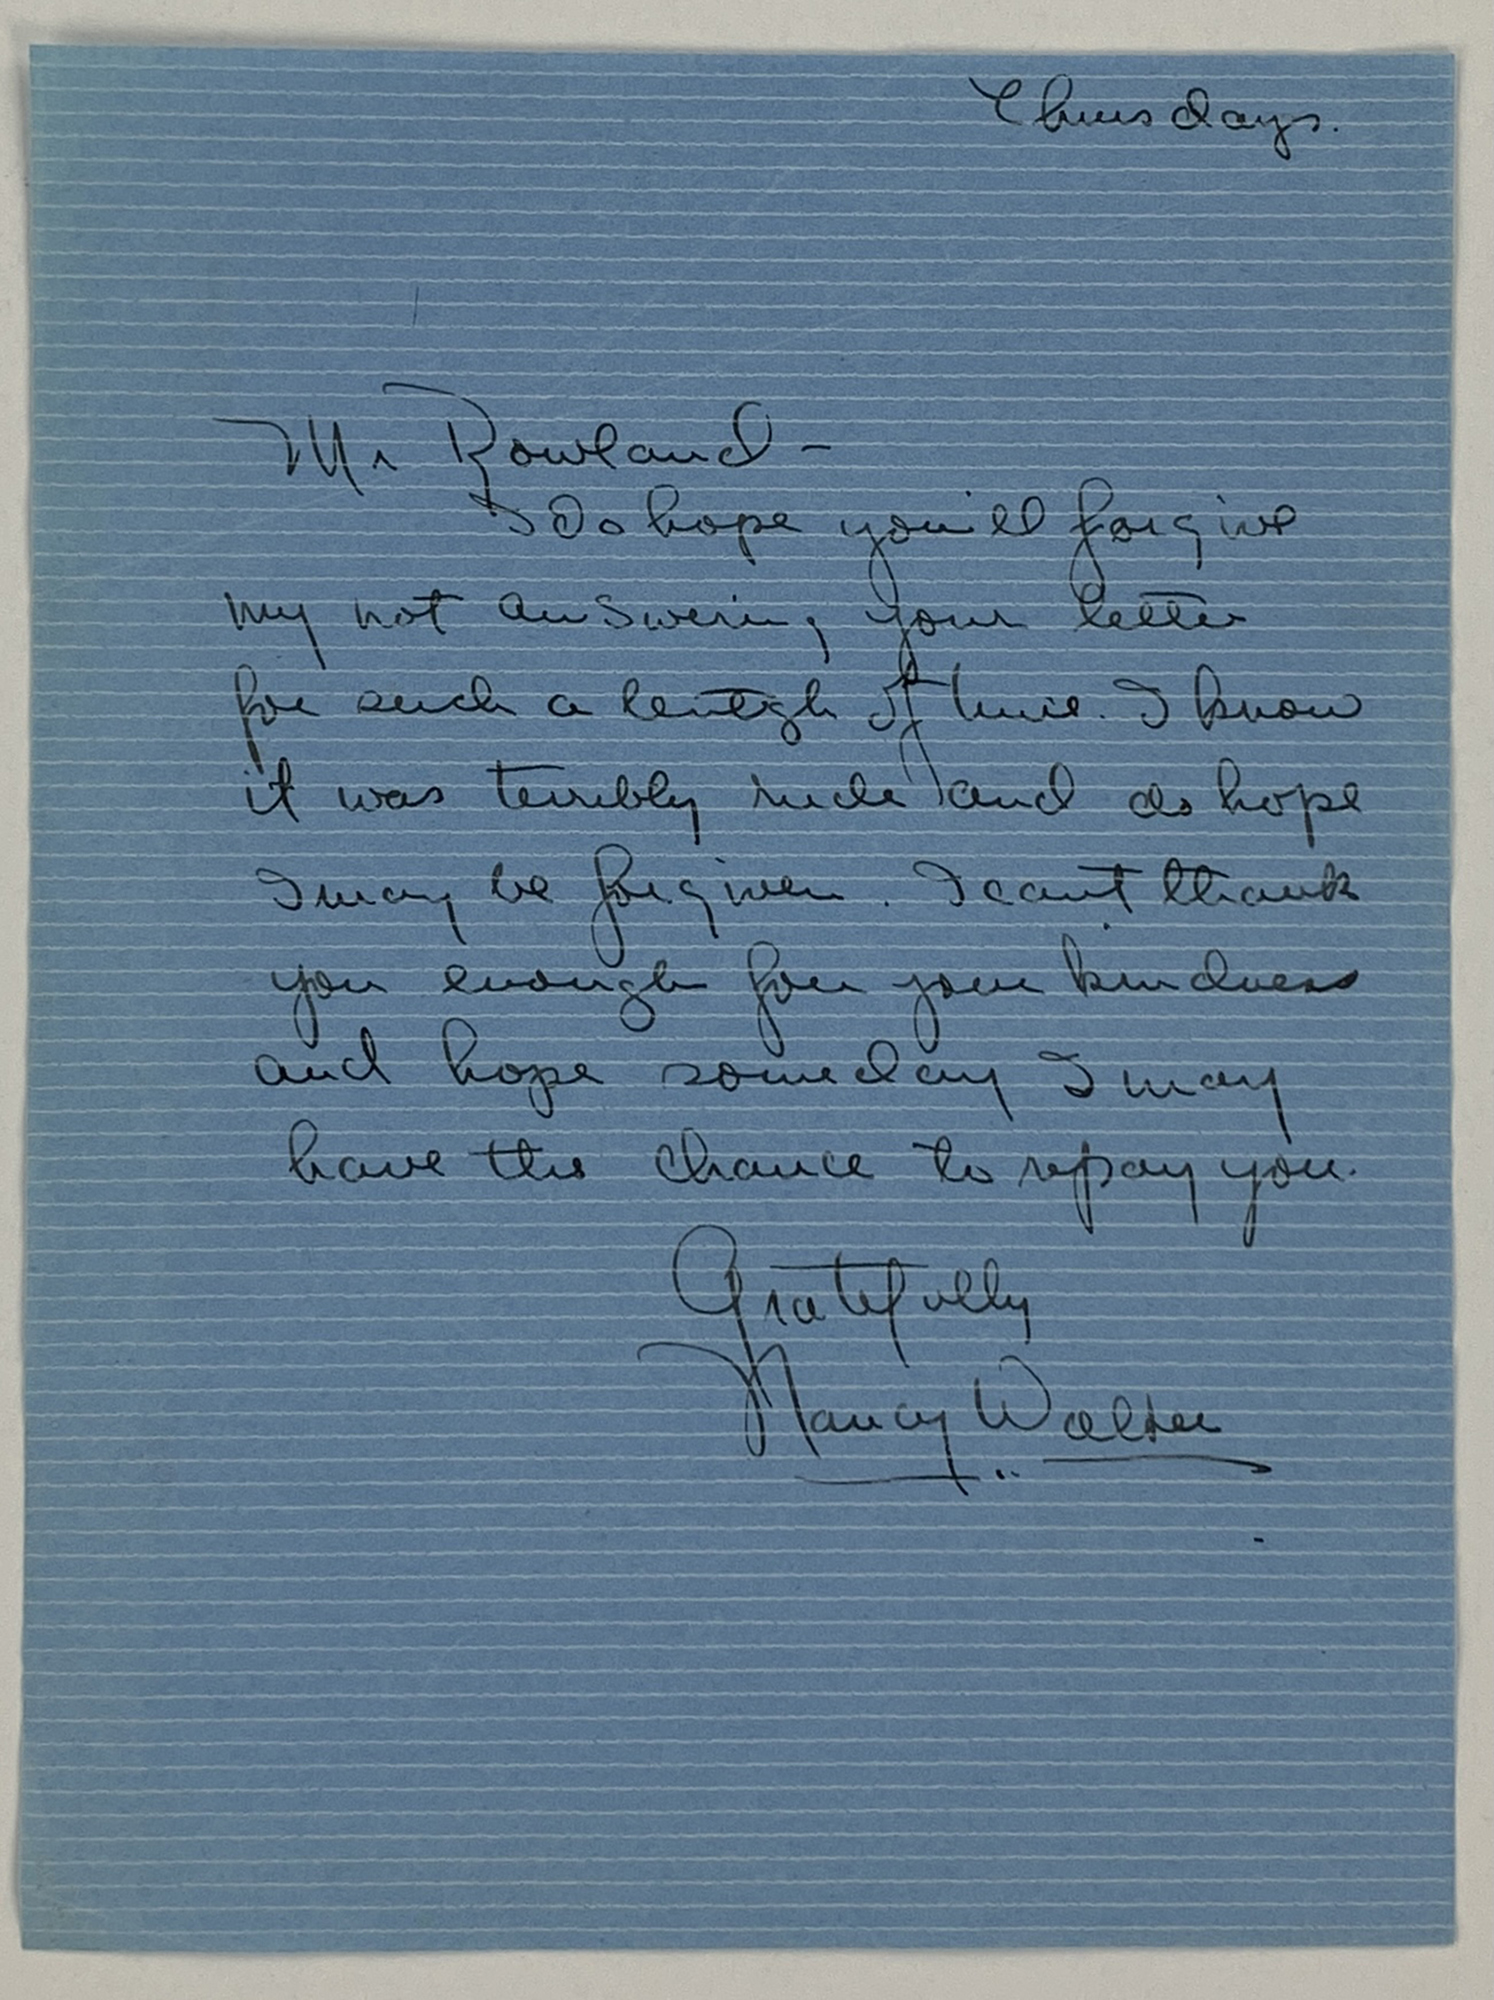 Thursdays.
Mr Rowland -
I do hope you'll forgive
my not answering your letter
for such a lentegh of time. I know
it was terribly rude and do hope
I may be forgiven. I can't thank
you enough for your kindness
and hope someday I may
have the chance to repay you.
Gratefully
Nancy Walker